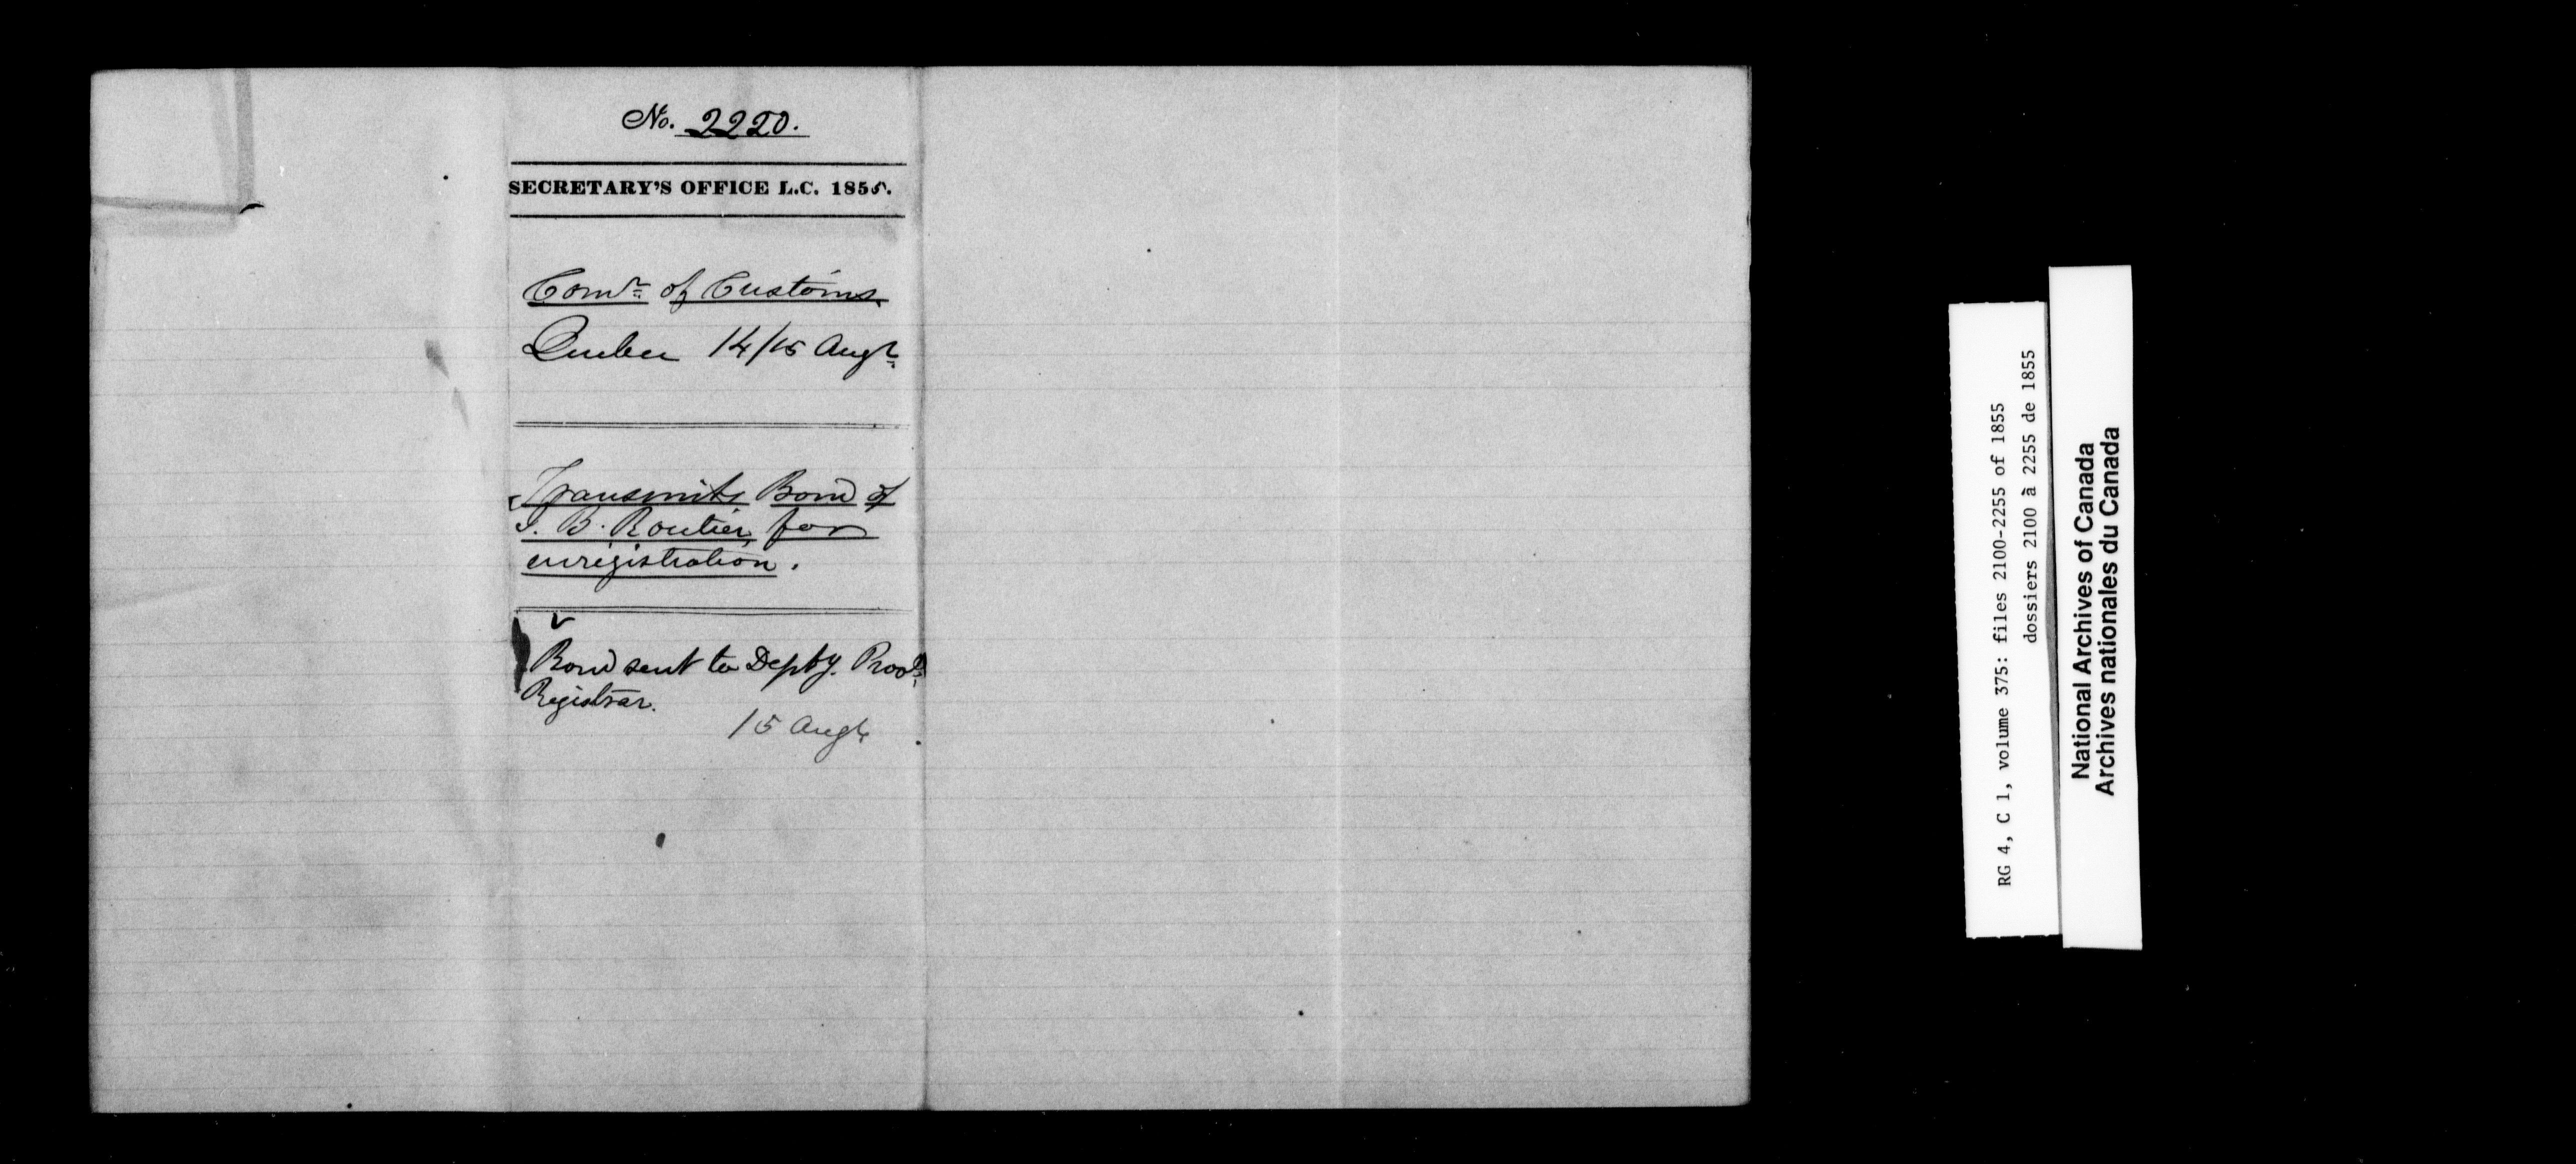 No. 2220.
SECRETARY'S OFFICE L.C. 1855.
Comr of Customs
Quebec 14/15 Augt
Transmits Bond of
J. B. Routier, for
enregistration.
Bond sent to Depty. Provl
Registrar.
15 Augt
RG 4, C 1, volume 375: files 2100-2255 of 1855
dossiers 2100 à 2255 de 1855
National Archives of Canada
Archives nationales du Canada